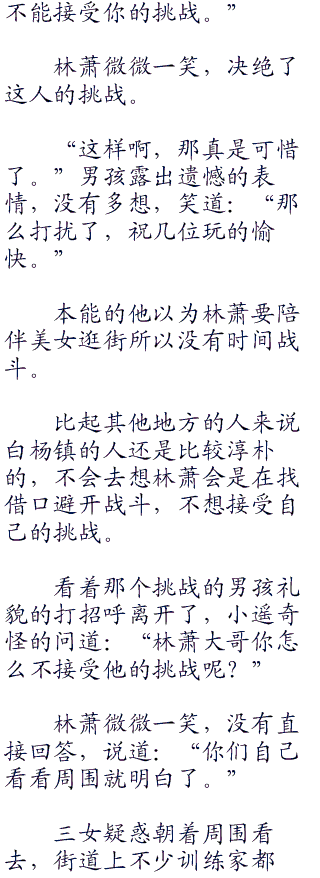 不能接受你的挑战。”
林萧微微一笑，决绝了
这人的挑战。
“这样啊，那真是可惜
了。”男孩露出遗憾的表
情，没有多想，笑道：“那
么打扰了，祝几位玩的愉
快。”
本能的他以为林萧要陪
伴美女逛街所以没有时间战
斗。
比起其他地方的人来说
白杨镇的人还是比较淳朴
的，不会去想林萧会是在找
借口避开战斗，不想接受自
己的挑战。
看着那个挑战的男孩礼
貌的打招呼离开了，小遥奇
怪的问道：“林萧大哥你怎
么不接受他的挑战呢？”
林萧微微一笑，没有直
接回答，说道：“你们自己
看看周围就明白了。”
三女疑惑朝着周围看
去，街道上不少训练家都